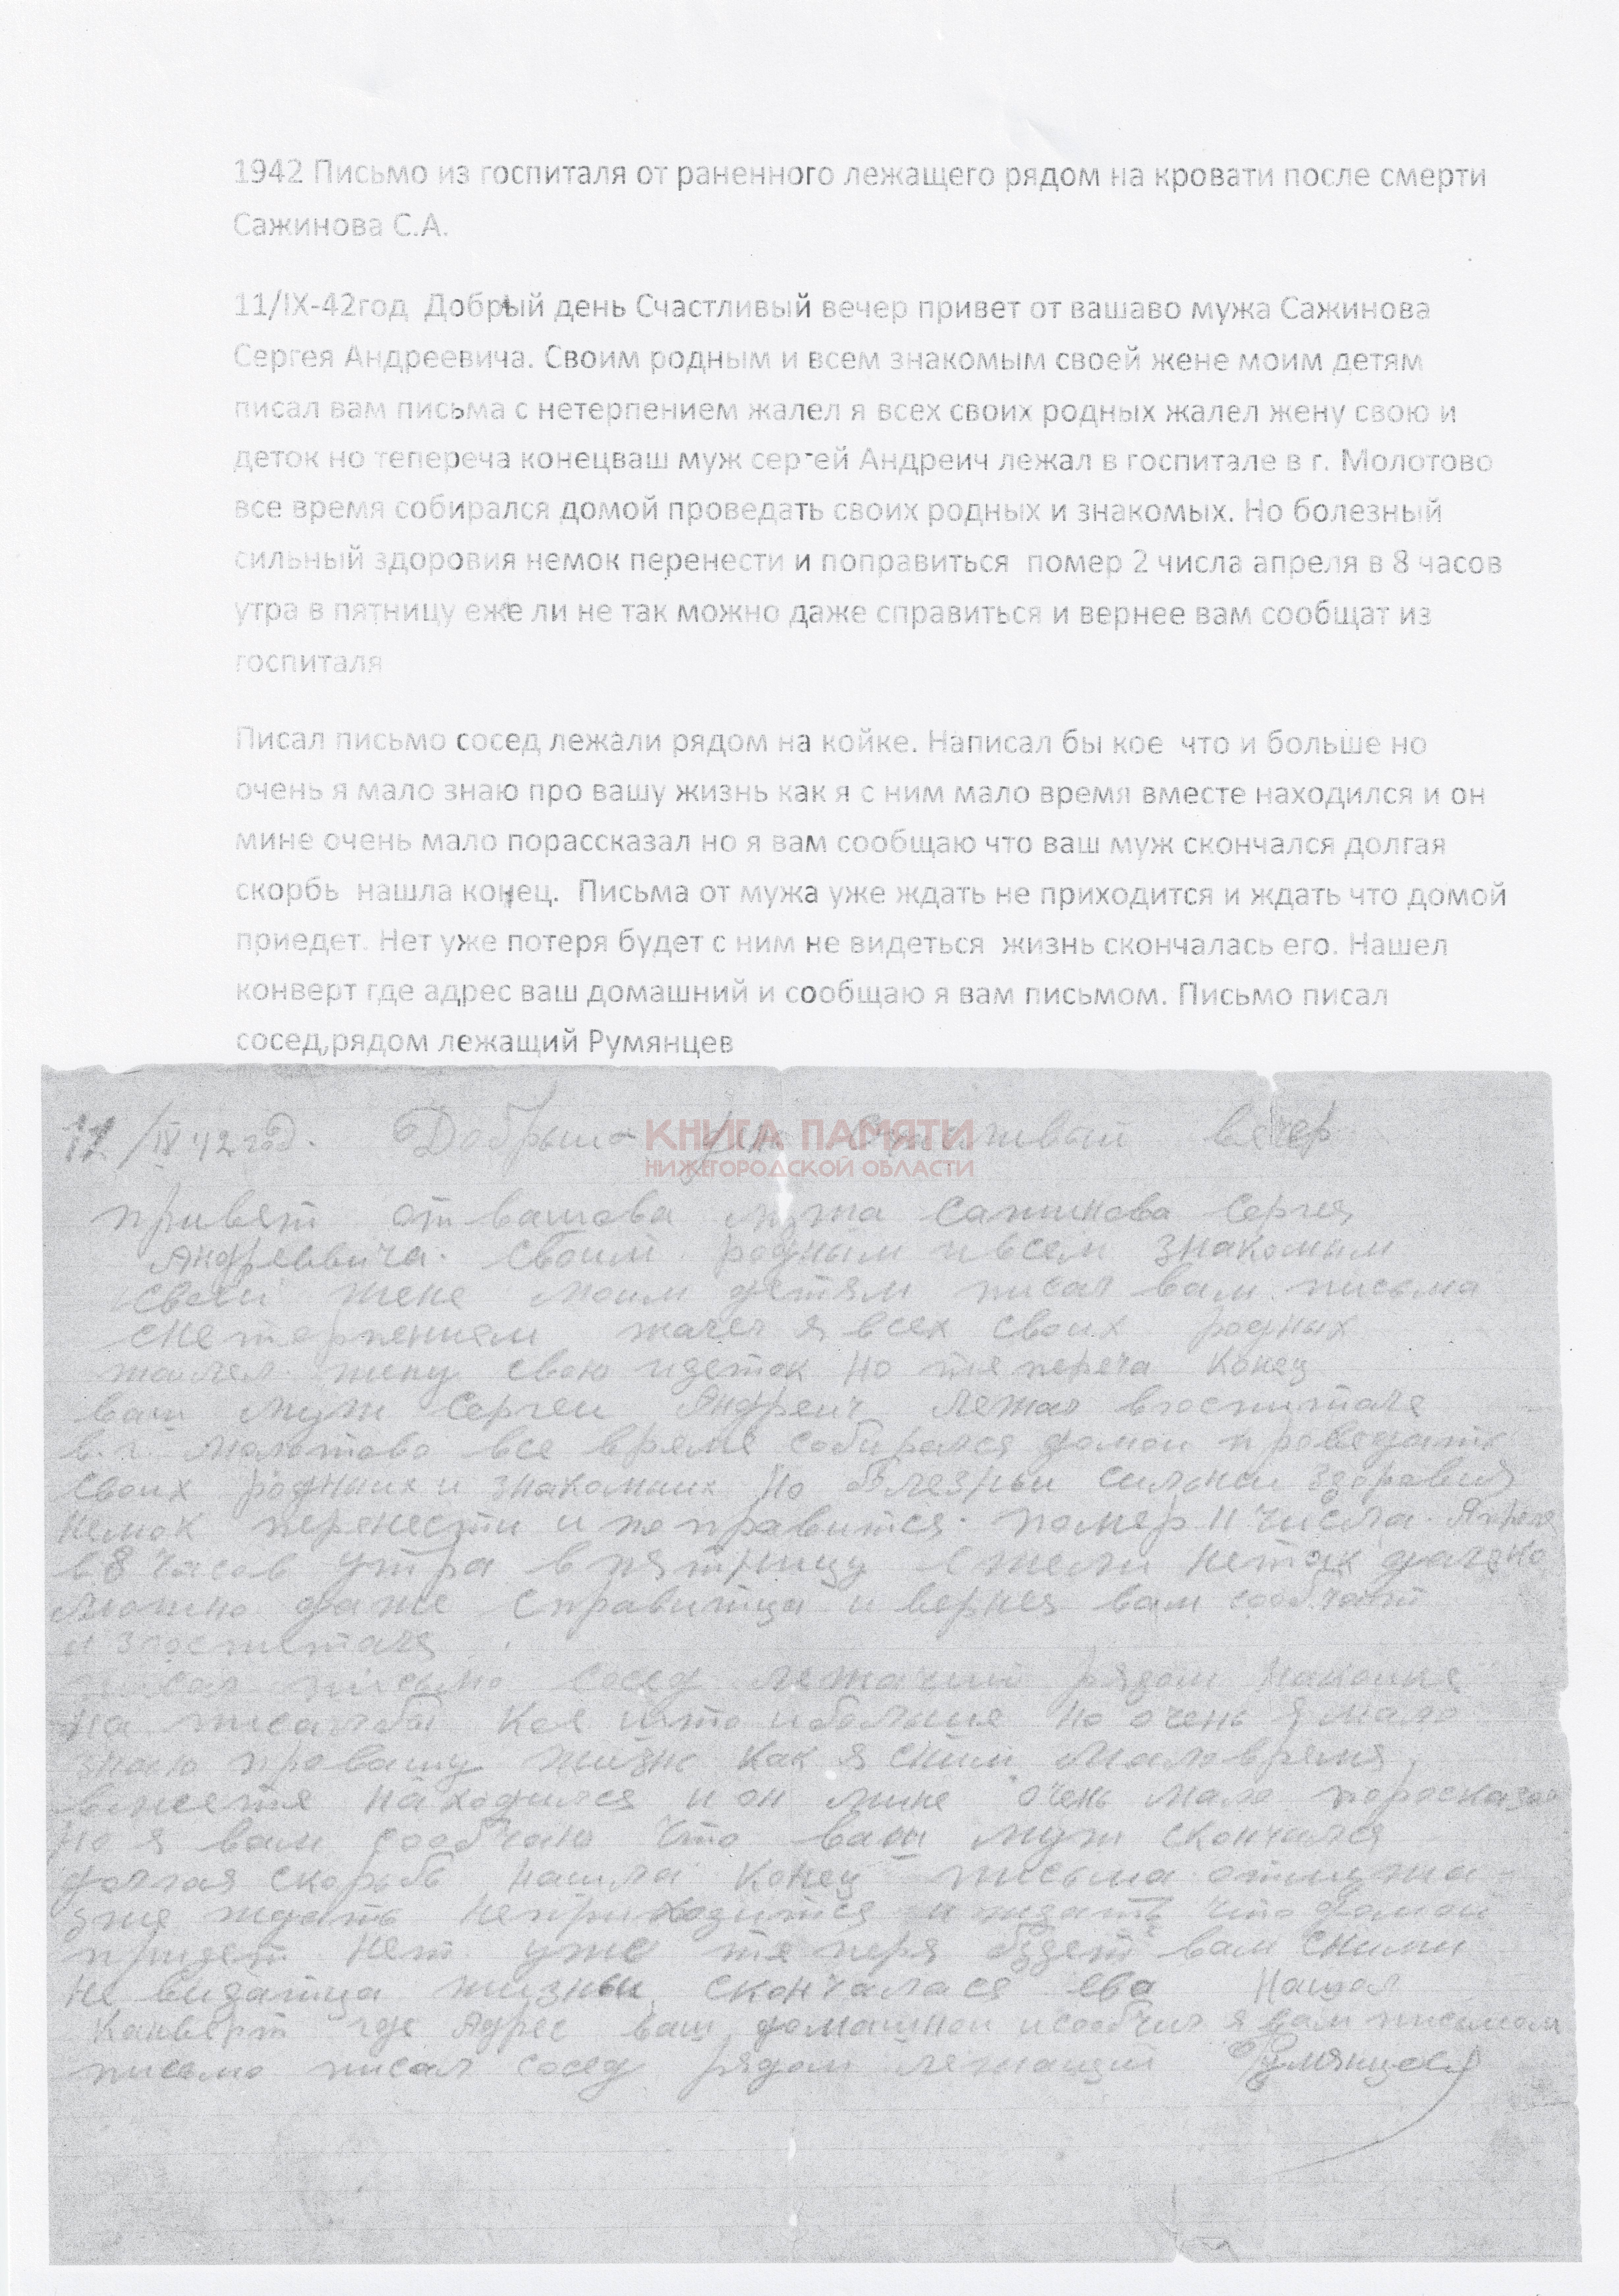 1942 Письмо из госпиталя от раненного лежащего рядом на кровати после смерти
Сажинова С.А.
11/IX-42год Добрый день Счастливый вечер привет от вашаво мужа Сажинова
Сергея Андреевича. Своим родным и всем знакомым своей жене моим детям
писал вам письма с нетерпением жалел я всех своих родных жалел жену свою и
деток но тепереча конецваш муж сергей Андреич лежал в госпитале в г. Молотово
все время собирался домой проведать своих родных и знакомых. Но болезный
сильный здоровия немок перенести и поправиться помер 2 числа апреля в 8 часов
утра в пятницу еже ли не так можно даже справиться и вернее вам сообщат из
госпиталя
Писал письмо сосед лежали рядом на койке. Написал бы кое что и больше но
очень я мало знаю про вашу жизнь как я с ним мало время вместе находился и он
мине очень мало порассказал но я вам сообщаю что ваш муж скончался долгая
скорбь нашла конец. Письма от мужа уже ждать не приходится и ждать что домой
приедет. Нет уже потеря будет с ним не видеться жизнь скончалась его. Нашел
конверт где адрес ваш домашний и сообщаю я вам письмом. Письмо писал
сосед,рядом лежащий Румянцев
КНИГА ПАМЯТИ
НИЖЕГОРОДСКОЙ ОБЛАСТИ
11/IX 42 год. Добрый день Счастливый вечер
привет от вашева мужа Сажинова Сергея
Андреевича. Своим родным и всем знакомым
своей жене моим детям писал вам письма
снетерпением жалел я всех своих родных
жалел жену свою идеток но тяпереча конец
ваш муж Сергей Андреич лежал вгоспитале
в.г. Молотово все время собирался домой проведать
своих родных и знакомых но болезный сильный здоровия
немок перенести и поправится. помер 11 числа Апреля
в 8 часов утра в пятницу ежели нетак
можно даже справитца и вернея вам сообчат
изгоспиталя
писал письмо сосед лежачий рядом накойке
на писалбы кое што иболыше но очень я мало
знаю провашу жизнь как я сним маловремя
вместя находился и он мине очень мало
но я вам сообчаю что ваш муж скончался
долгая скорьбь нашла конец письма отмужа
уже ждать неприходитса и ждать что домой
придет нет уже тяперя будет вам сними
не видатца жизнь скончалася ево Нашол
Канверт где Адрес ваш домашной исообчил я вам письмом
письмо писал сосед рядом лежащий Румянцев